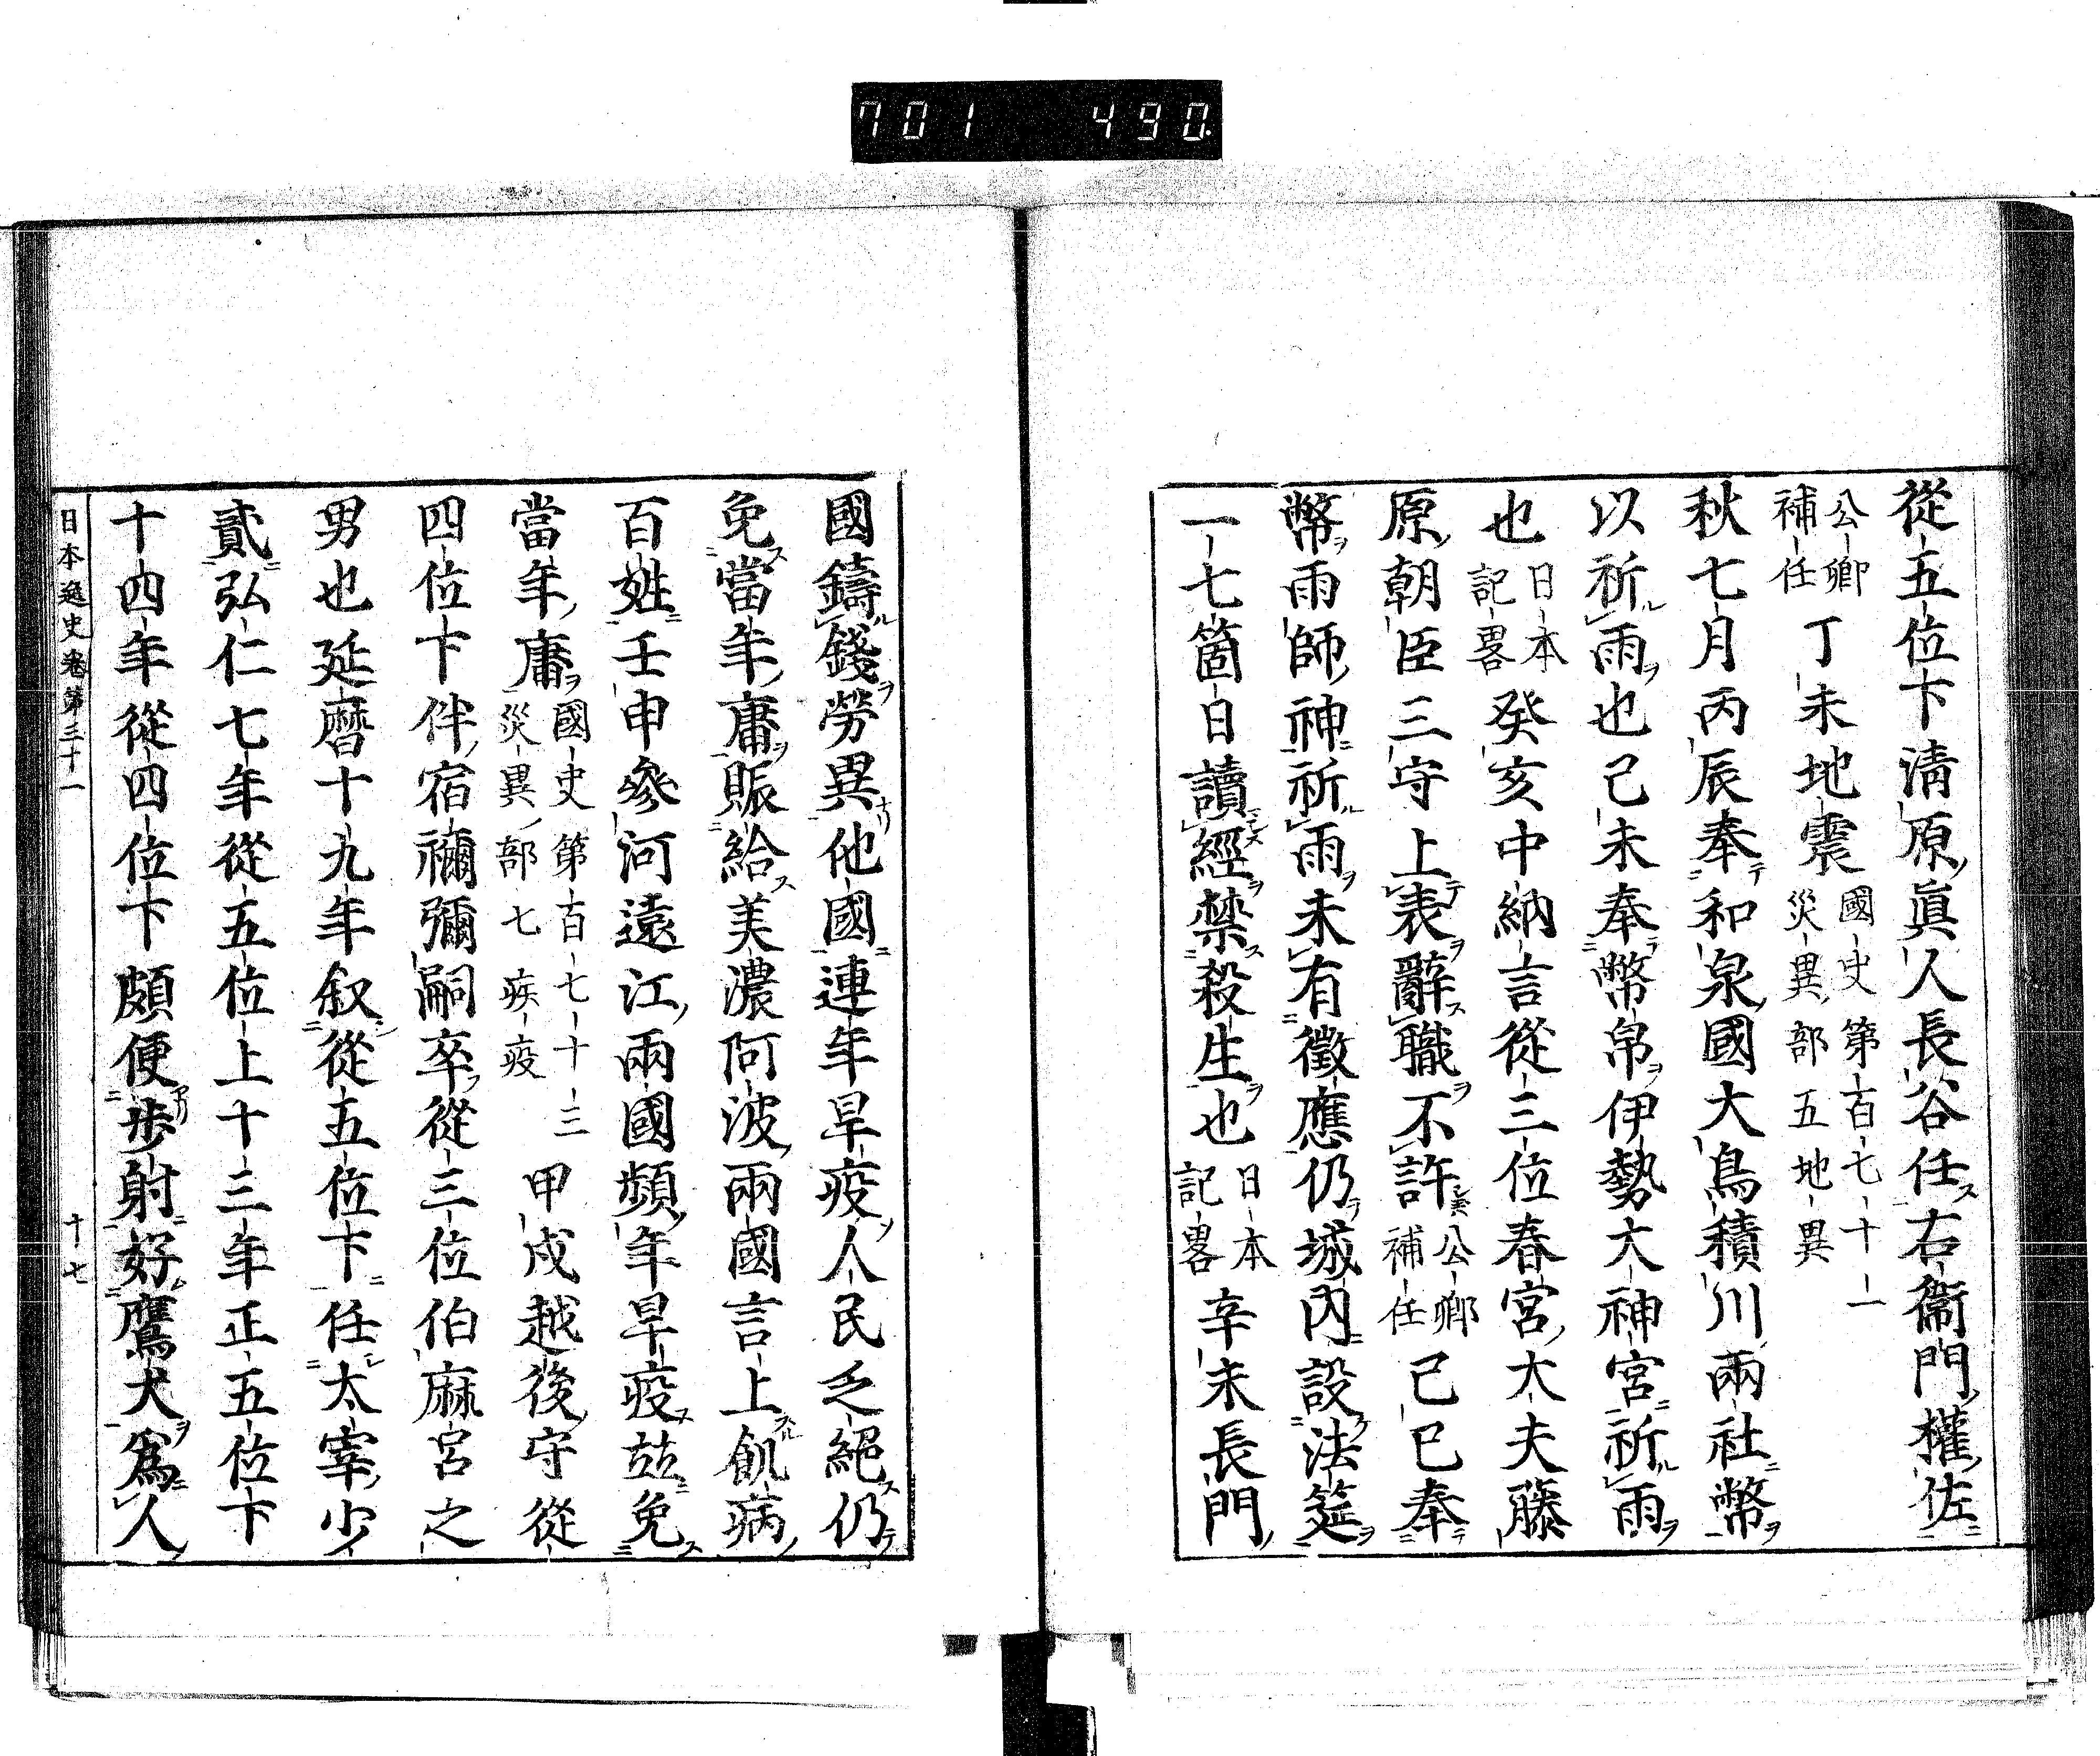 701 490.
從五位下清原眞人長谷任右衞門權佐
公卿補任丁未地震國史第百七十一災異部五地異
秋七月丙辰奉和泉國大鳥積川兩社幣
以祈雨也己未奉幣帛伊勢大神宮祈雨
也日本記畧癸亥中納言從三位春宮大夫藤
原朝臣三守上表辭職不許公卿補任己巳奉
幣雨師神祈雨未有徵應仍城內設法筵
一七箇日讀經禁殺生也日本記畧辛未長門
國鑄錢勞異他國連年旱疫人民乏絕仍
免當年庸賑給美濃阿波兩國言上飢病
百姓壬申參河遠江兩國頻年旱疫玆免
當年庸國史第百七十三災異部七疾疫甲戌越後守從
四位下伴宿禰彌嗣卒從三位伯麻呂之
男也延曆十九年叙從五位下任太宰少
貳弘仁七年從五位上十三年正五位下
十四年從四位下頗便步射好鷹犬爲人
日本逸史卷第三十一 十七